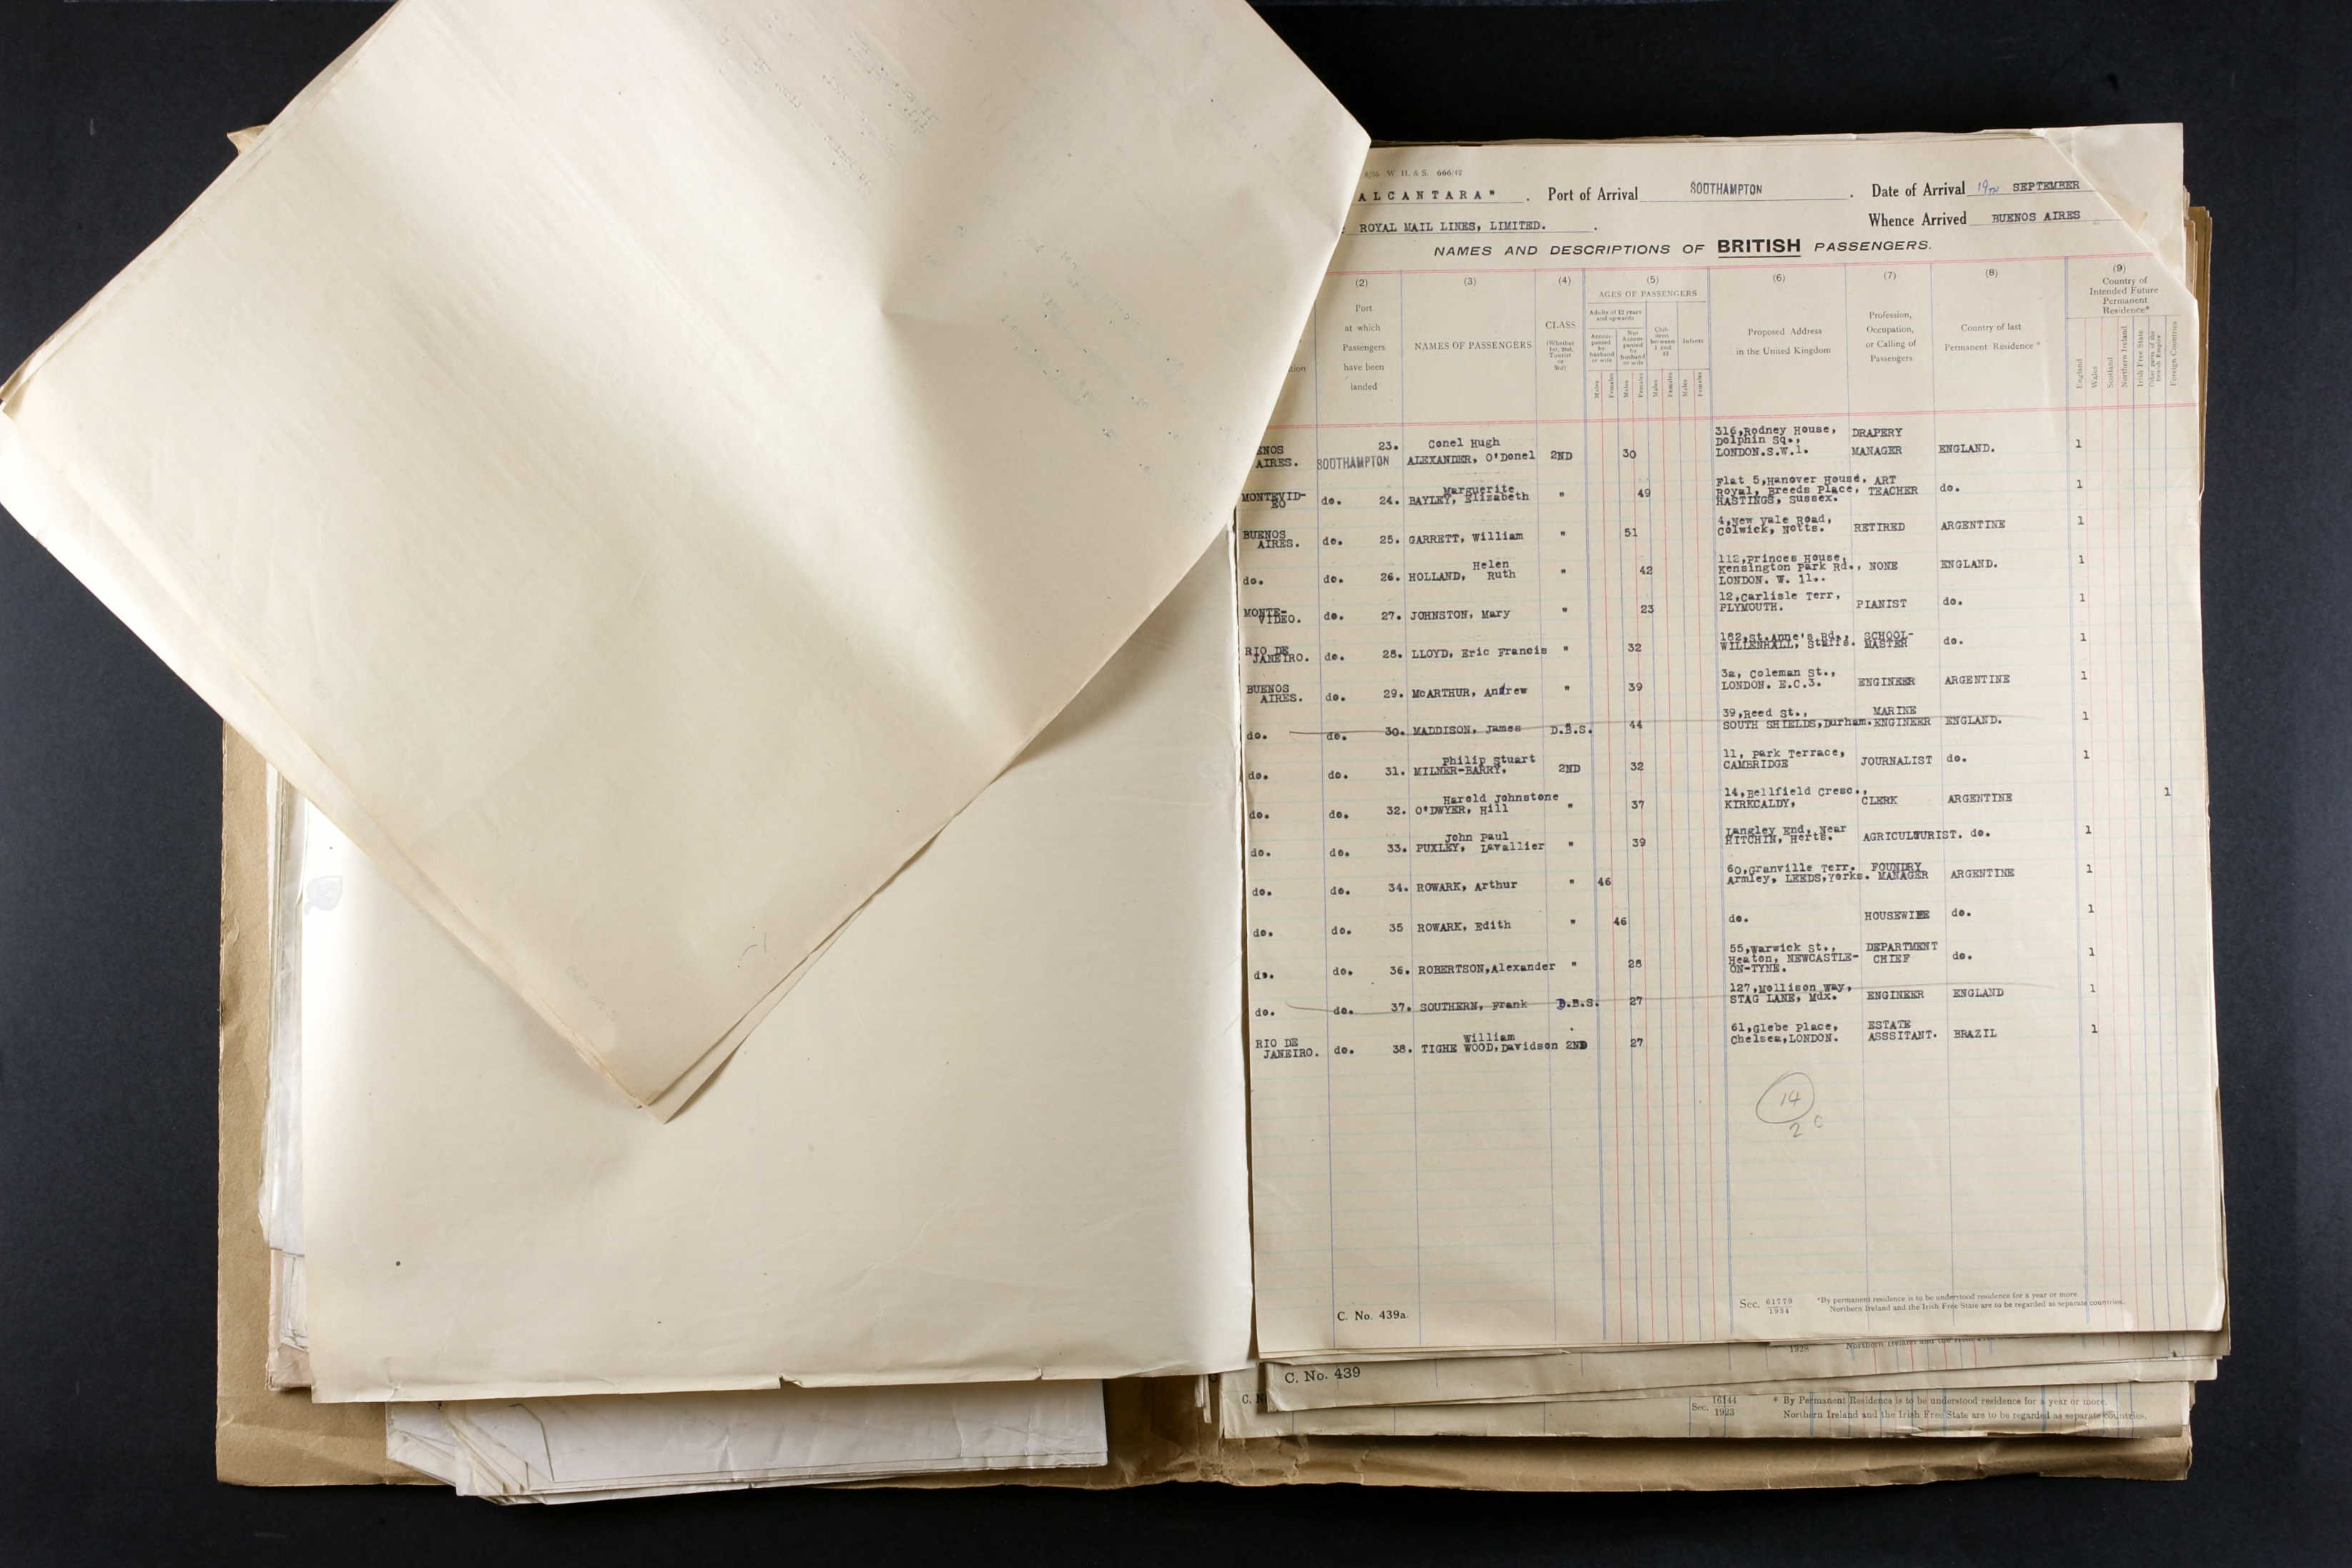 8/35 W. H. & S. 666/42
ALCANTARA" . Port of Arrival SOUTHAMPTON . Date of Arrival 19TH SEPTEMBER
ROYAL MAIL LINES, LIMITED. . Whence Arrived BUENOS AIRES
NAMES AND DESCRIPTIONS OF BRITISH PASSENGERS.
(2) (3) (4) (5) (6) (7) (8) (9)
Port
at which
Passengers
have been
landed
NAMES OF PASSENGERS
CLASS
(Whether
1st, 2nd,
Tourist
or
3rd)
AGES OF PASSENGERS
Adults of 12 years
and upwards
Accom-
panied
by
husband
or wife
Not
Accom-
panied
by
husband
or wife
Chil-
dren
between
1 and
12
Infants
Males Females Males Females Males Females Males Females
Proposed Address
in the United Kingdom
Profession,
Occupation,
or Calling of
Passengers
Country of last
Permanent Residence *
Country of
Intended Future
Permanent
Residence*
England
Wales
Scotland
Northern Ireland
Irish Free State
Other parts of the
British Empire
Foreign Countries
23. Conel Hugh 316,Rodney House, DRAPERY
ENOS Dolphin Sq., 1
AIRES. SOUTHAMPTON ALEXANDER, O'Donel 2ND 30 LONDON.S.W.1. MANAGER ENGLAND.
Marguerite Flat 5,Hanover House, ART
MONTEVID- do. 24. BAYLEY, Elizabeth " 49 Royal, Breeds Place, TEACHER do. 1
EO HASTINGS, Sussex.
BUENOS 4,New Vale Road, 1
AIRES. do. 25. GARRETT, William " 51 Colwick, Notts. RETIRED ARGENTINE
Helen 112,Princes House,
do. do. 26. HOLLAND, Ruth " 42 Kensington Park Rd., NONE ENGLAND. 1
LONDON. W. 11..
MONTE- 12,Carlisle Terr,
VIDEO. do. 27. JOHNSTON, Mary " 23 PLYMOUTH. PIANIST do. 1
RIO DE 182,St.Anne's Rd., SCHOOL-
JANEIRO. do. 28. LLOYD, Eric Francis " 32 WILLENHALL, Staffs. MASTER do. 1
BUENOS 3a, Coleman St.,
AIRES. do. 29. McARTHUR, Andrew " 39 LONDON. E.C.3. ENGINEER ARGENTINE 1
39,Reed St., MARINE
do. do. 30. MADDISON, James D.B.S. 44 SOUTH SHIELDS,Durham. ENGINEER ENGLAND. 1
Philip Stuart 11, Park Terrace,
do. do. 31. MILNER-BARRY, 2ND 32 CAMBRIDGE JOURNALIST do. 1
Harold Johnstone 14,Bellfield Cresc.,
do. do. 32. O'DWYER, Hill " 37 KIRKCALDY, CLERK ARGENTINE 1
John Paul Langley End, Near
do. do. 33. PUXLEY, Lavallier " 39 HITCHIN, Herts. AGRICULTURIST. do. 1
60,Granville Terr. FOUNDRY
do. do. 34. ROWARK, Arthur " 46 Armley, LEEDS,Yorks. MANAGER ARGENTINE 1
do. do. 35 ROWARK, Edith " 46 do. HOUSEWIFE do. 1
55,Warwick St., DEPARTMENT
do. do. 36. ROBERTSON,Alexander " 28 Heaton, NEWCASTLE- CHIEF do. 1
ON-TYNE.
127,Mollison Way,
do. do. 37. SOUTHERN, Frank D.B.S. 27 STAG LANE, Mdx. ENGINEER ENGLAND 1
RIO DE William 61,Glebe Place, ESTATE
JANEIRO. do. 38. TIGHE WOOD,Davidson 2ND 27 Chelsea,LONDON. ASSSITANT. BRAZIL 1
14
2 C
C. No. 439a.
Sec. 61779/1934 *By permanent residence is to be understood residence for a year or more.
Northern Ireland and the Irish Free State are to be regarded as separate countries.
1928
C. No. 439
C. N
Sec. 16144/1923 * By Permanent Residence is to be understood residence for a year or more.
Northern Ireland and the Irish Free State are to be regarded as separate countries.